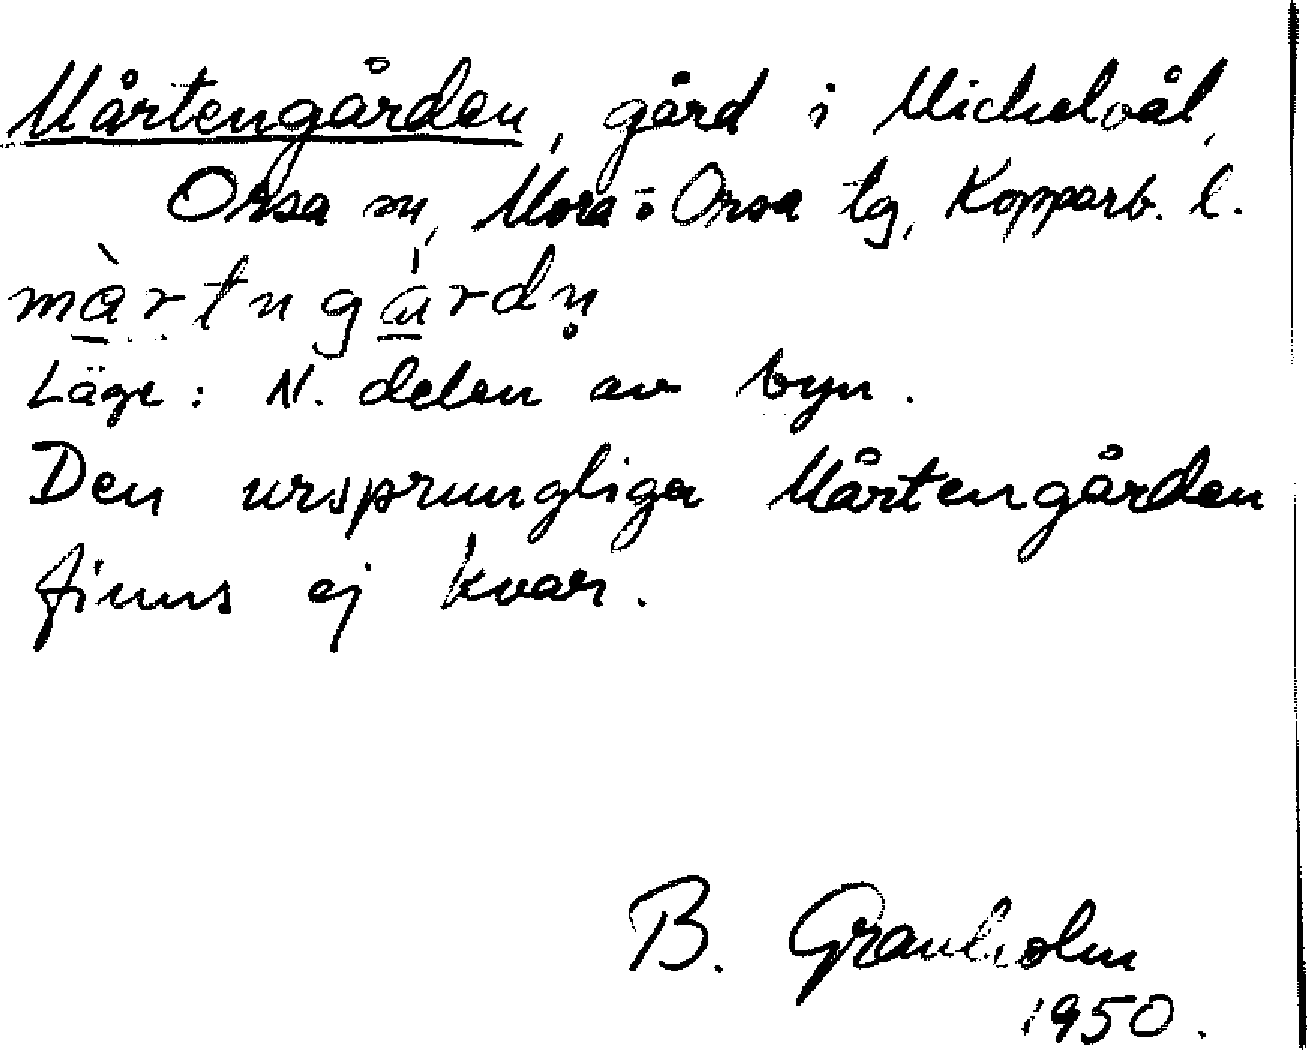 Mårtengården, gård i Mickelvål,
Orsa sn, Mora o Orsa tg, Kopparb. l.
màrtn gárdn̥
Läge: N. delen av byn.
Den ursprungliga Mårtengården
finns ej kvar.
B. Granholm
1950.